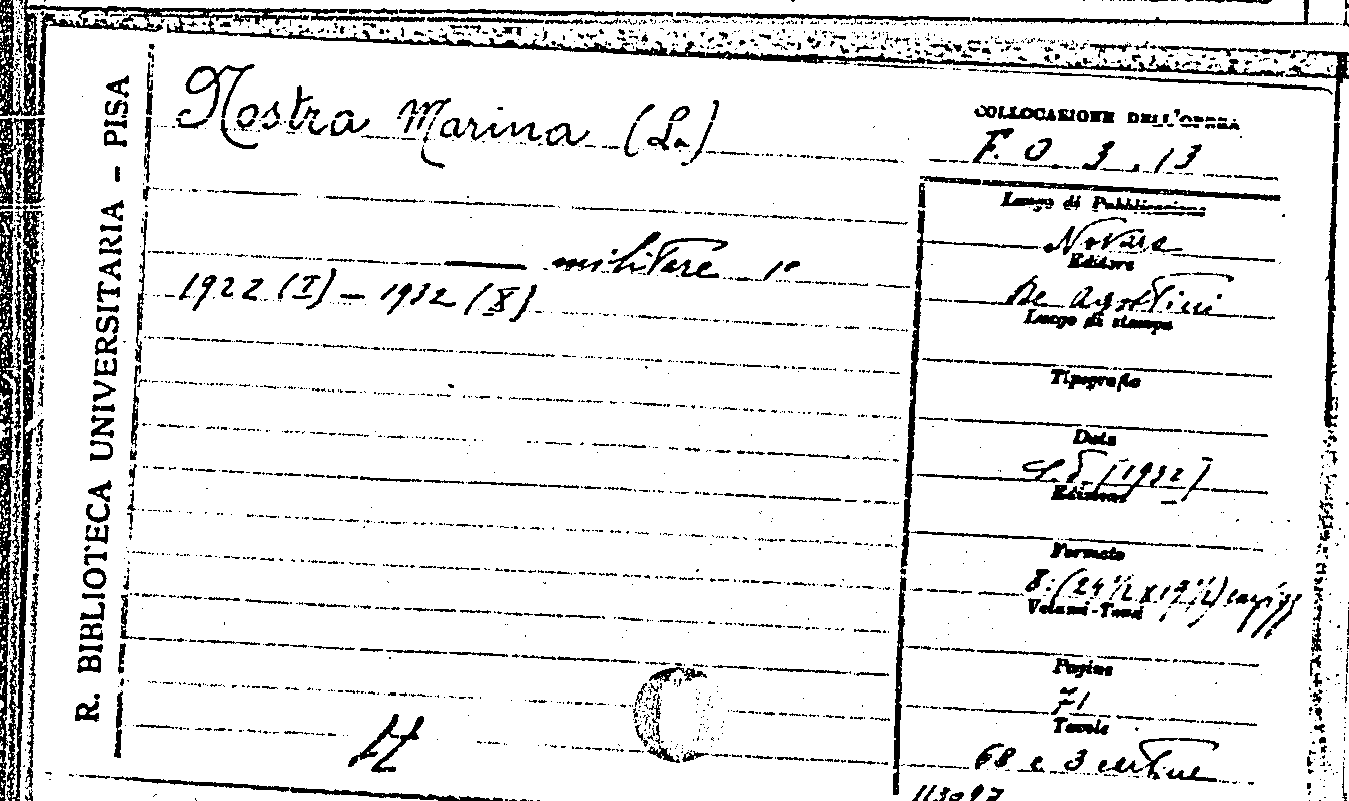 R. BIBLIOTECA UNIVERSITARIA - PISA
Nostra Marina (La)
— militare 1°
1922 (I) — 1932 (X)
COLLOCAZIONE DELL'OPERA
F. O. 3. 13
Luogo di Pubblicazione
Novara
Editore
De Agostini
Luogo di stampa
Tipografia
Data
s. d. [1932]
Edizione
Formato
8° (24 1/2 x 17 1/2)
Volumi-Tomi
Pagine
71
Tavole
68 e 3 cartine
113097